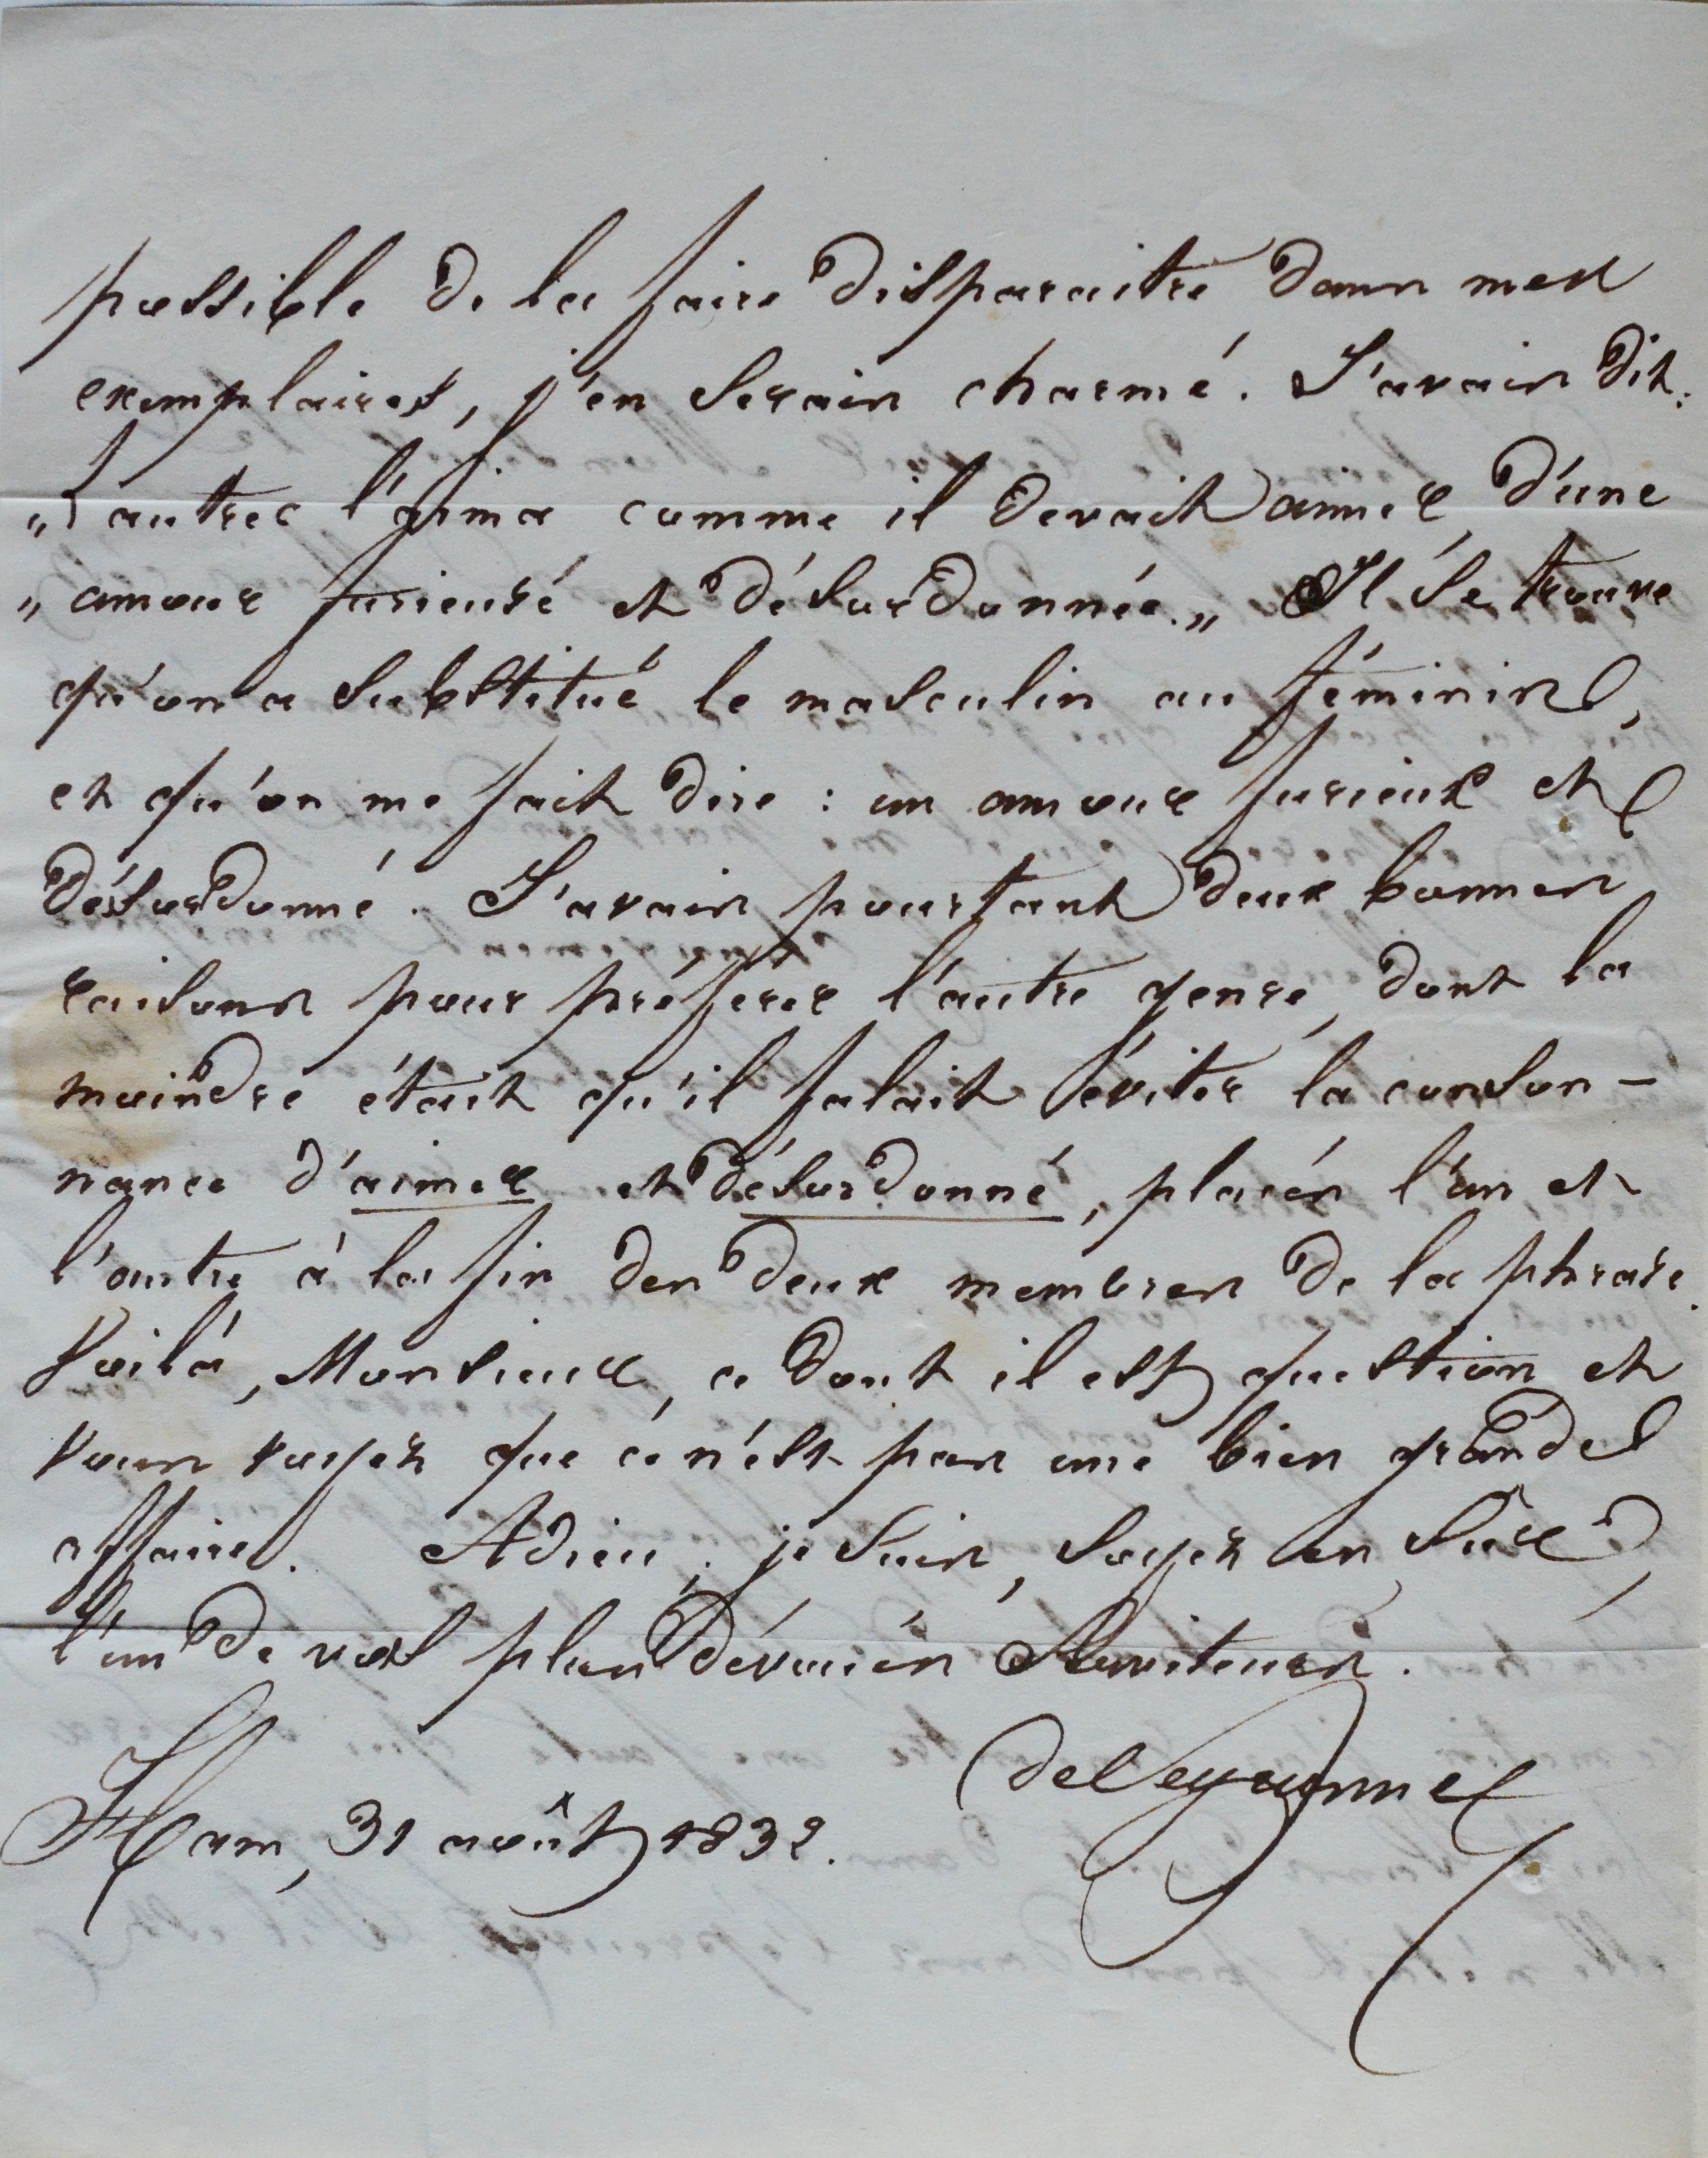 possible de la faire disparaitre dans mes
exemplaires, j'en serais charmé. J'avais dit:
„L'autre l'aima comme il devait aimer, d'une
„amour furieuse et désordonnée.„ Il se trouve
qu'on a substitué le masculin au féminin,
et qu'on me fait dire : un amour furieux et
désordonné. J'avais pourtant deux bonnes
raisons pour préférer l'autre genre, dont la
moindre était qu'il falait éviter la conson-
nance d'aimer et désordonné, placés l'un et
l'autre à la fin des deux membres de la phrase.
Voilà, Monsieur, ce dont il est question et
vous voyez que ce n'est pas une bien grande
affaire. Adieu, je suis, soyez en sûr,
l'un de vos plus dévoués Serviteurs.
de Peyronnet
Ham, 31 août 1832.